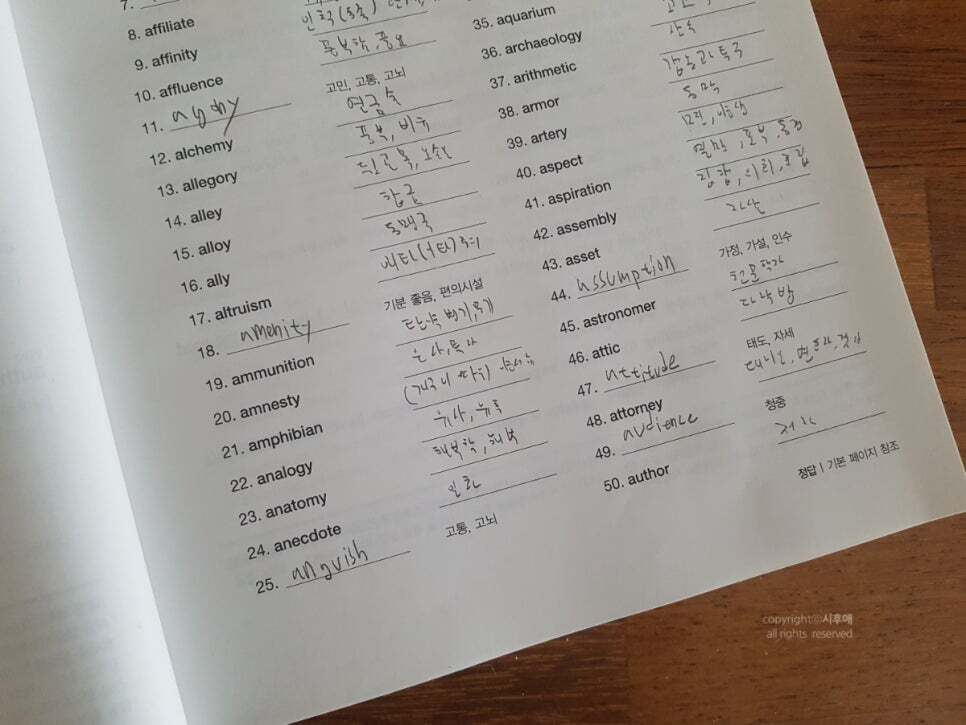 7.
8. affiliate
9. affinity
10. affluence 풍부함, 풍요
11. agony 고민, 고통, 고뇌
12. alchemy 연금술
13. allegory 풍유, 비유
14. alley 뒤골목,
15. alloy 합금
16. ally 동맹국
17. altruism 이타(애타)주의
18. amenity 기분 좋음, 편의시설
19. ammunition 탄약
20. amnesty
21. amphibian
22. analogy 유사, 유추
23. anatomy 해부학, 해부
24. anecdote 일화
25. anguish 고통, 고뇌
35. aquarium
36. archaeology
37. arithmetic 산수
38. armor
39. artery 동맥
40. aspect
41. aspiration 열망, 포부, 동경
42. assembly 집합, 의회, 조립
43. asset 자산
44. assumption 가정, 가설, 인수
45. astronomer 천문학자
46. attic 다락방
47. attitude 태도, 자세
48. attorney 대리인, 변호사, 검사
49. audience 청중
50. author 저자
정답 | 기본 페이지 참조
copyrightⓒ시후애
all rights reserved